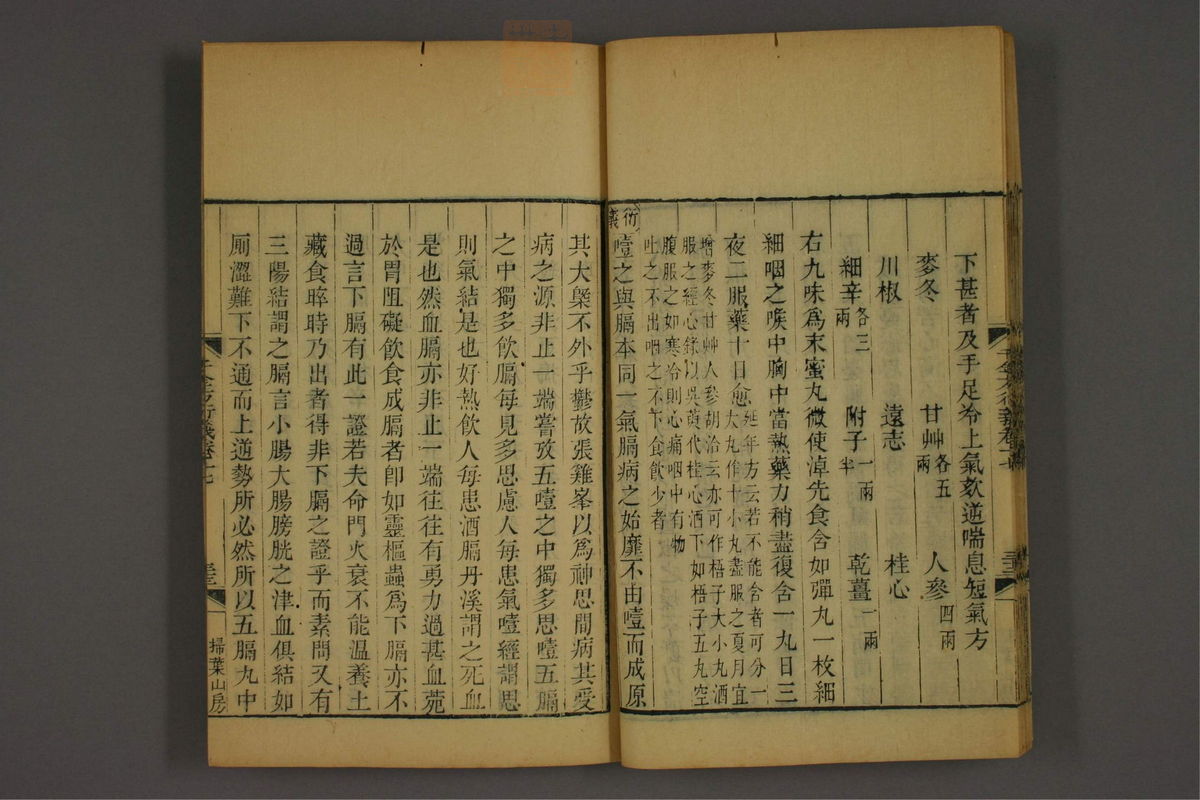 下甚者及手足冷上氣欬逆喘息短氣方
麥冬 甘艸各五兩 人參四兩
川椒 遠志 桂心
細辛各三兩 附子一兩半 乾薑二兩
右九味爲末蜜丸微使淖先食含如彈丸一枚細
細咽之喉中胸中當熱藥力稍盡復含一丸日三
夜二服藥十日愈延年方云若不能含者可分一
大丸作十小丸盡服之夏月宜
增麥冬甘艸人參胡洽云亦可作梧子大小丸酒
服之經心錄以吳茰代桂心酒下如梧子五丸空
腹服之如寒冷則心痛咽中有物
吐之不出咽之不下食飲少者
衍義
噎之與膈本同一氣膈病之始靡不由噎而成原
其大槩不外乎鬱故張雞峯以爲神思間病其受
病之源非止一端嘗攷五噎之中獨多思噎五膈
之中獨多飲膈每見多思慮人每患氣噎經謂思
則氣結是也好熱飲人每患酒膈丹溪謂之死血
是也然血膈亦非止一端往往有勇力過甚血菀
於胃阻礙飲食成膈者卽如靈樞蟲爲下膈亦不
過言下膈有此一證若夫命門火衰不能溫養土
藏食晬時乃出者得非下膈之證乎而素問又有
三陽結謂之膈言小腸大腸膀胱之津血俱結如
厠澀難下不通而上逆勢所必然所以五膈丸中
掃葉山房